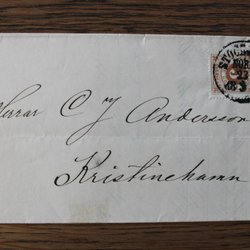 Herrar C J Andersson
Kristinehamn